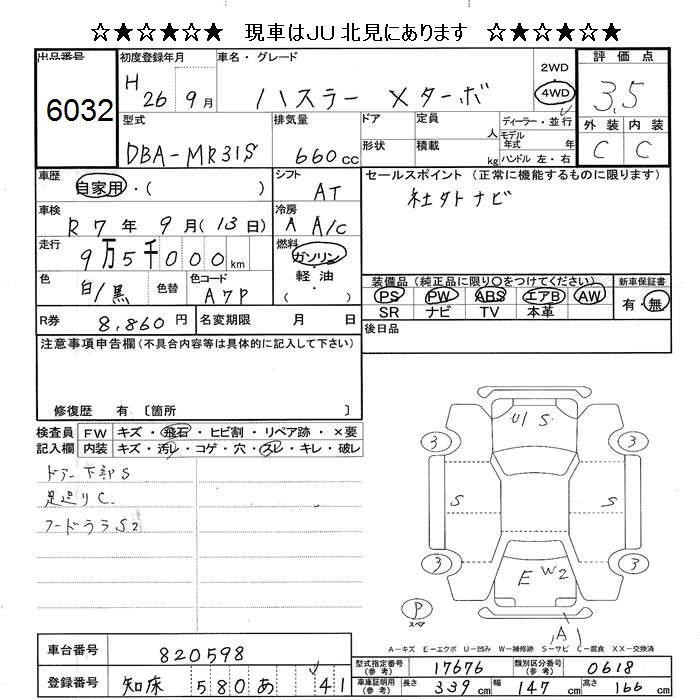 ☆★☆★☆★ 現車はJU北見にあります ☆★☆★☆★
出品番号 初度登録年月 車名・グレード 2WD 評価点
6032 H 26 9月 ハスラー Xターボ 4WD 3.5
型式 排気量 ドア 定員 人 ディーラー・並行 外装 内装
DBA-MR31S 660cc 形状 積載 kg モデル年式 年 ハンドル 左・右 C C
車歴 自家用・( ) シフト AT セールスポイント(正常に機能するものに限ります)
社外ナビ
車検 R 7年 9月(13日) 冷房 A A/C
走行 9万5千000km 燃料 ガソリン・軽油・( )
装備品(純正品に限り○をつけてください) 新車保証書
色 白/黒 色替 色コード A7P PS PW ABS エアB AW 有・無
SR ナビ TV 本革
R券 8,860円 名変期限 月 日 後日品
注意事項申告欄(不具合内容等は具体的に記入して下さい)
修復歴 有 〔箇所 〕
検査員 FW キズ・飛石・ヒビ割・リペア跡・×要
記入欄 内装 キズ・汚レ・コゲ・穴・スレ・キレ・破レ
ドアー下部S
足廻りC
フードウラS2
U1 S
3 3
S S
3 3
E W2
P スペア
A
A-キズ E-エクボ U-凹み W-補修跡 S-サビ C-腐食 XX-交換済
車台番号 820598 型式指定番号(参考) 17676 類別区分番号(参考) 0618
登録番号 知床 580 あ 41 車庫証明用(参考) 長さ 339cm 幅 147cm 高さ 166cm